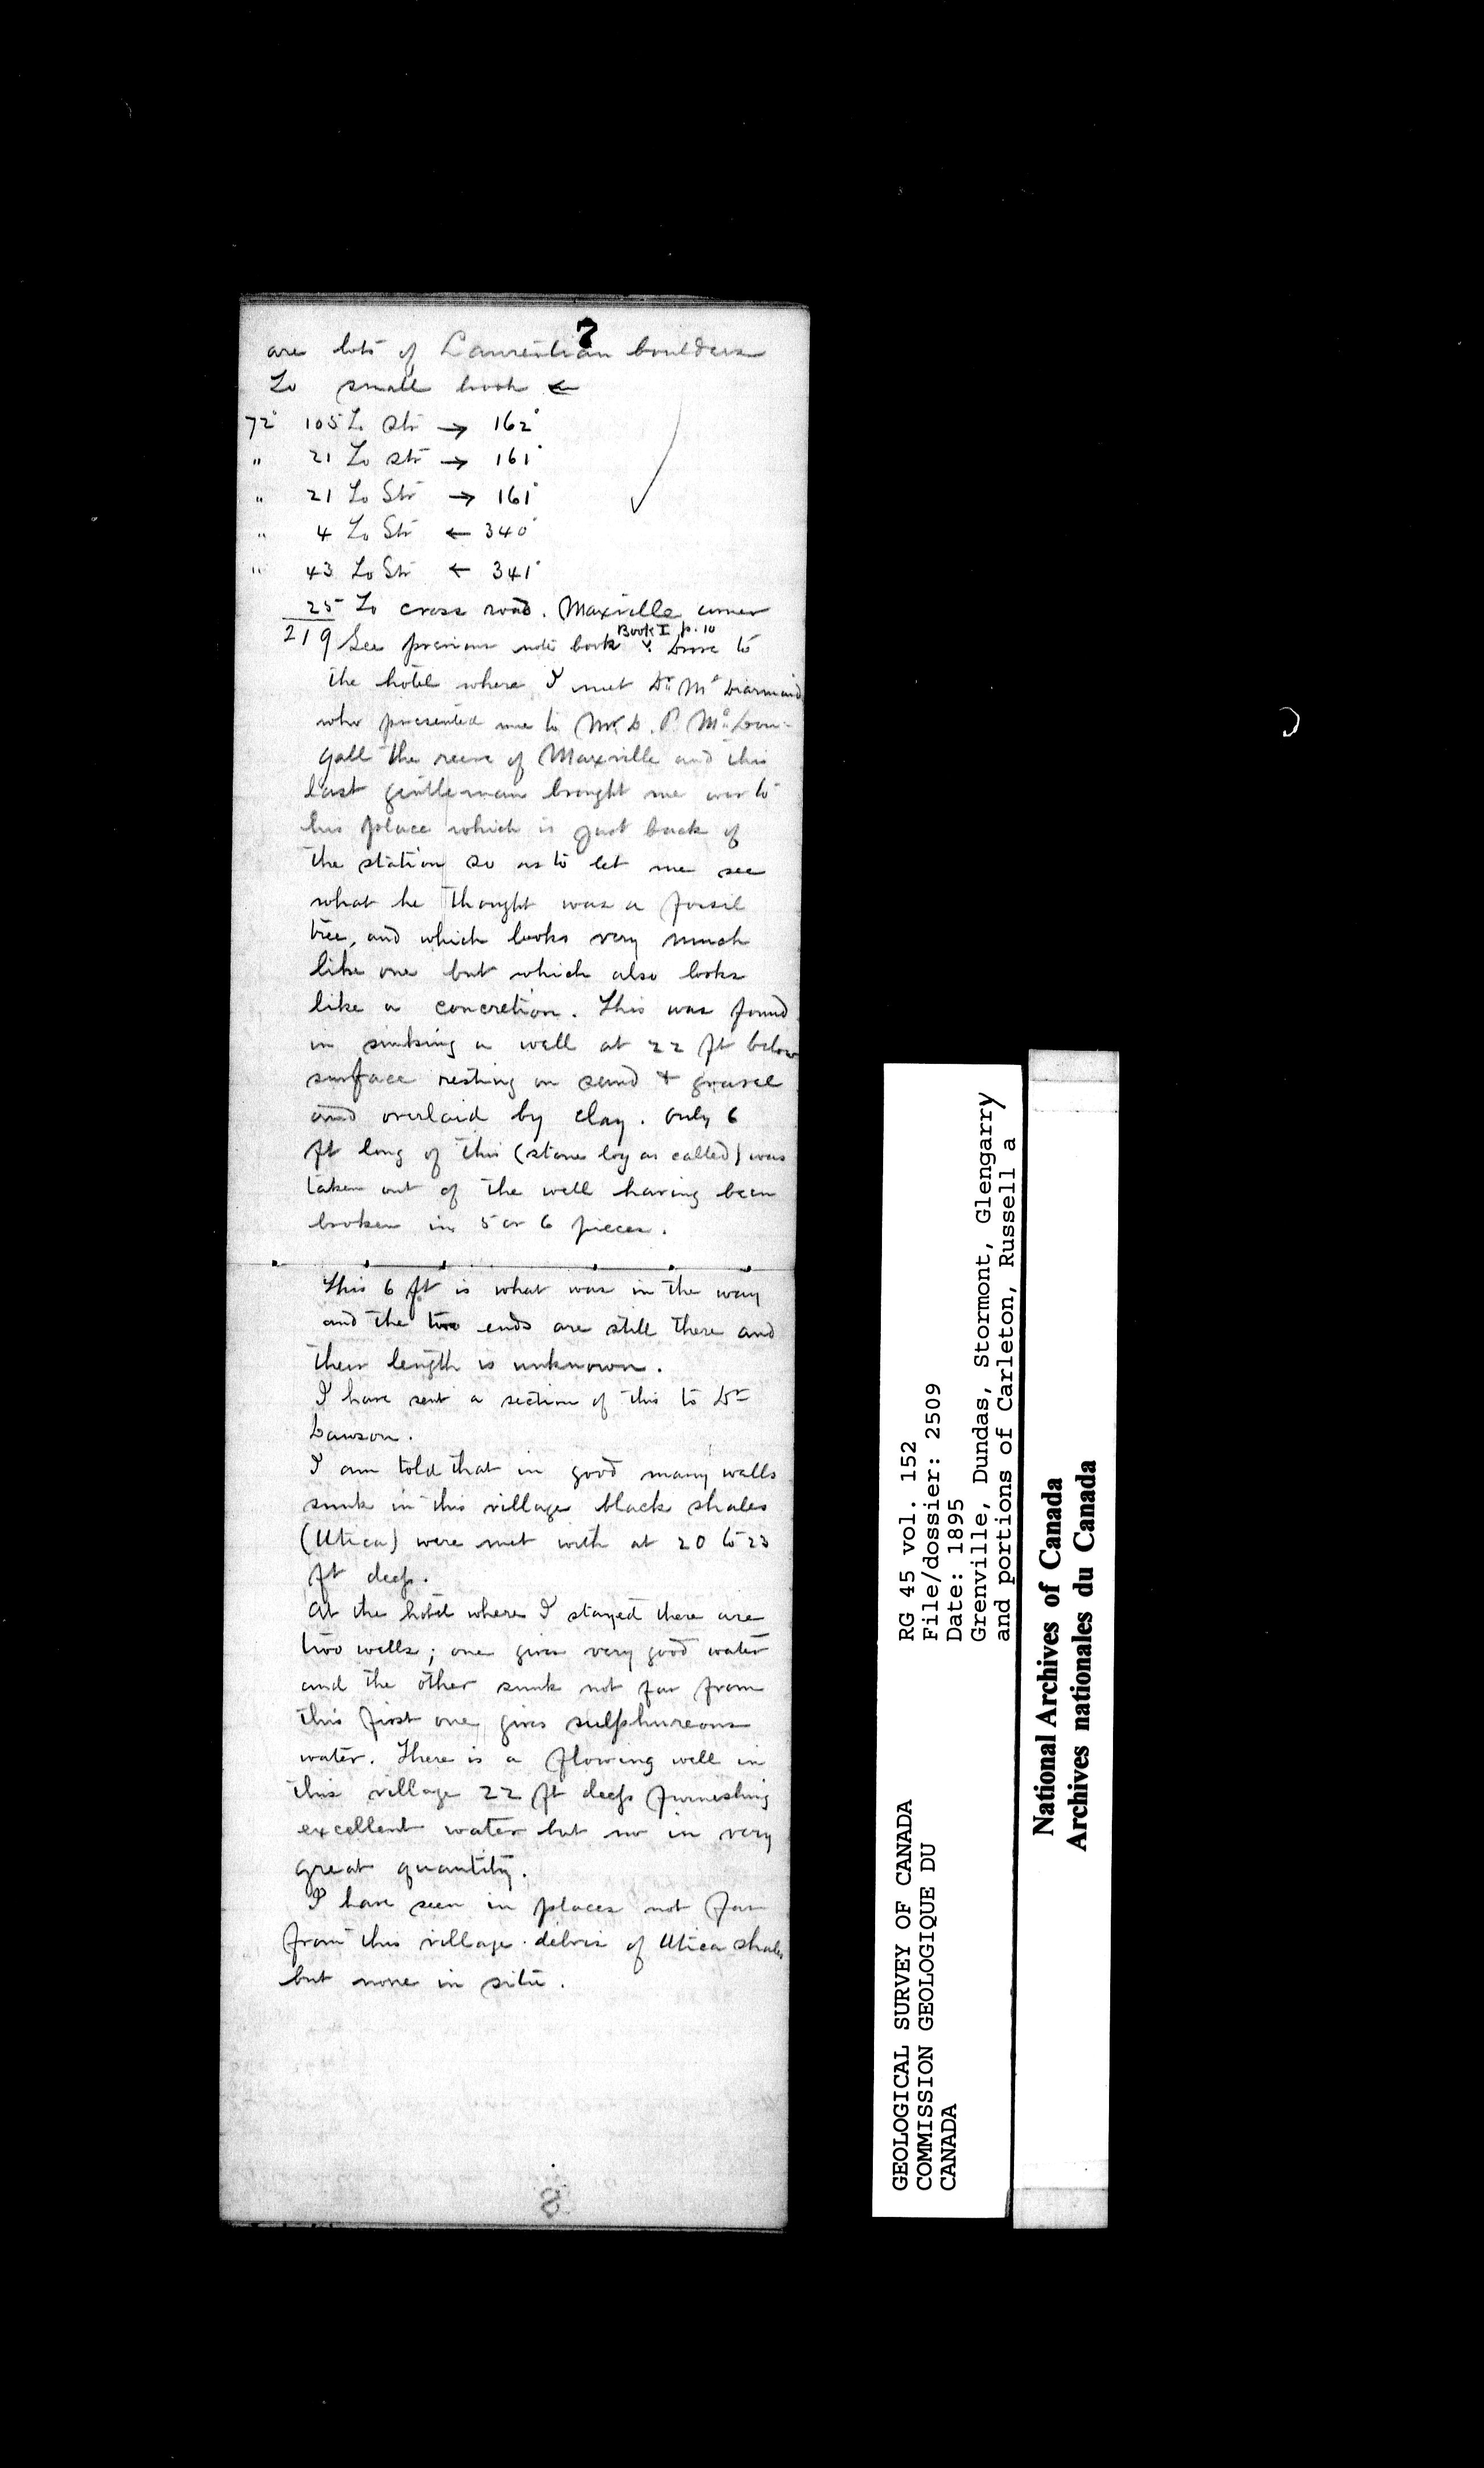 7
are lots of Laurentian boulders
To small brook ←
72° 105 To Str → 162°
" 21 To Str → 161°
" 21 To Str → 161°
" 4 To Str ← 340°
" 43 To Str ← 341°
25 To cross road. Maxville corner
219 See previous note book Book I p. 10 Drove to
the hotel where I met Dr Mc Diarmaid
who presented me to Mr D. P. Mc Dou-
gall the reeve of Maxville and this
last gentleman brought me over to
his place which is just back of
the station so as to let me see
what he thought was a fossil
tree, and which looks very much
like one but which also looks
like a concretion. This was found
in sinking a well at 22 ft below
surface resting on sand + gravel
and overlaid by clay. Only 6
ft long of this (stone log as called) was
taken out of the well having been
broken in 5 or 6 pieces.
This 6 ft is what was in the way
and the two ends are still there and
their length is unknown.
I have sent a section of this to Dr
Dawson.
I am told that in good many wells
sunk in this village black shales
(Utica) were met with at 20 to 23
ft deep.
At the hotel where I stayed there are
two wells; one gives very good water
and the other sunk not far from
this first one, gives sulphureous
water. There is a flowing well in
this village 22 ft deep furnishing
excellent water but no in very
great quantity.
I have seen in places not far
from this village debris of Utica shales
but none in situ.
8
GEOLOGICAL SURVEY OF CANADA
COMMISSION GEOLOGIQUE DU
CANADA
RG 45 vol. 152
File/dossier: 2509
Date: 1895
Grenville, Dundas, Stormont, Glengarry
and portions of Carleton, Russell a
National Archives of Canada
Archives nationales du Canada